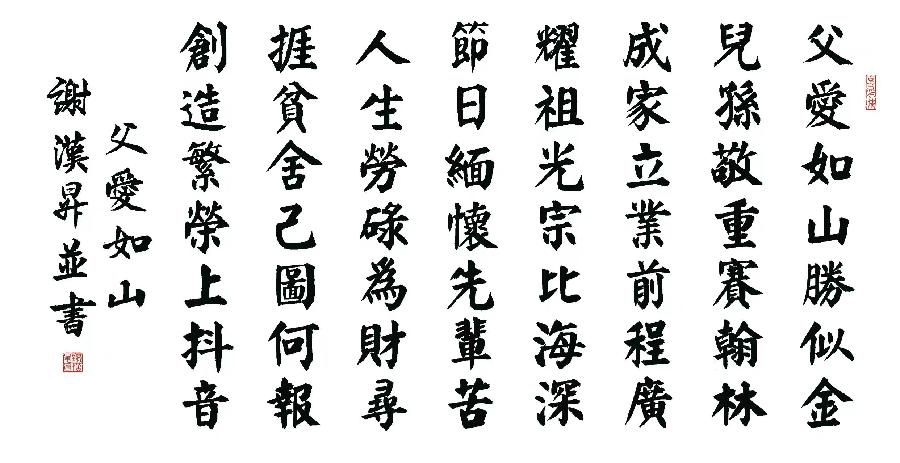 父愛如山勝似金
兒孫敬重賽翰林
成家立業前程廣
耀祖光宗比海深
節日緬懷先輩苦
人生勞碌為財尋
捱貧舍己圖何報
創造繁榮上抖音
父愛如山
謝漢昇並書